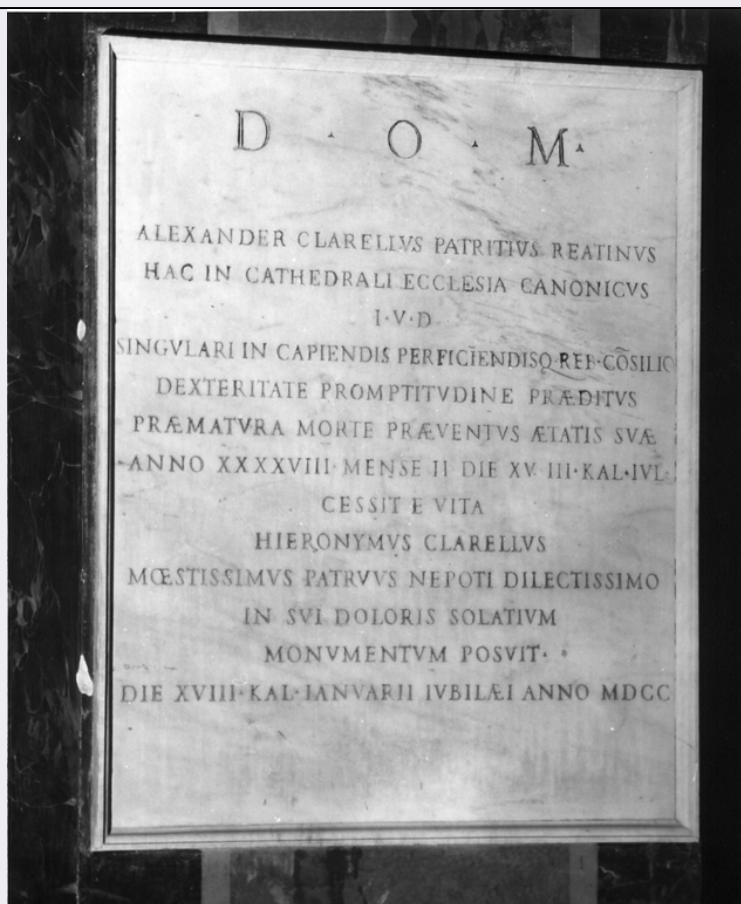 D · O · M ·
ALEXANDER CLARELLVS PATRITIVS REATINVS
HAC IN CATHEDRALI ECCLESIA CANONICVS
I · V · D
SINGVLARI IN CAPIENDIS PERFICIENDISQ · REB · CŌSILIO
DEXTERITATE PROMPTITVDINE PRÆDITVS
PRÆMATVRA MORTE PRÆVENTVS ÆTATIS SVÆ
· ANNO XXXXVIII · MENSE II DIE XV III · KAL · IVL ·
CESSIT E VITA
HIERONYMVS CLARELLVS
MŒSTISSIMVS PATRVVS NEPOTI DILECTISSIMO
IN SVI DOLORIS SOLATIVM
MONVMENTVM POSVIT ·
DIE XVIII · KAL · IANVARII IVBILÆI ANNO MDCC